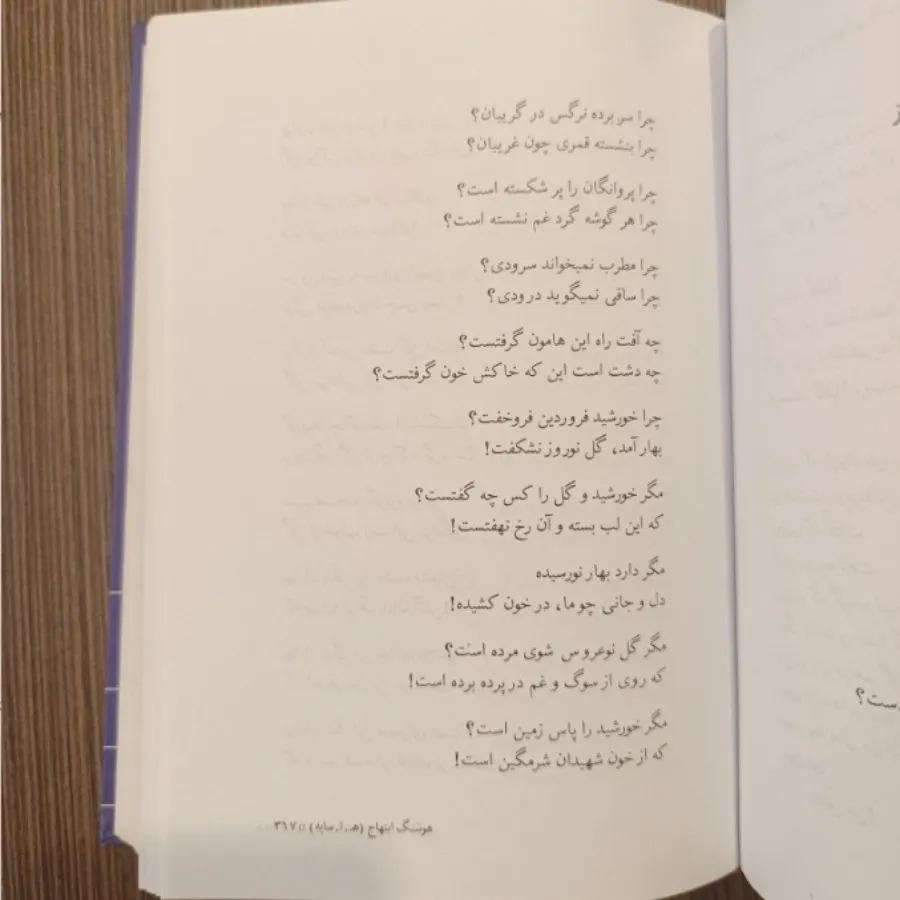 چرا سر برده نرگس در گریبان؟
چرا بنشسته قمری چون غریبان؟
چرا پروانگان را پر شکسته است؟
چرا هر گوشه گرد غم نشسته است؟
چرا مطرب نمیخواند سرودی؟
چرا ساقی نمیگوید درودی؟
چه آفت راه این هامون گرفتست؟
چه دشت است این که خاکش خون گرفتست؟
چرا خورشید فروردین فروخفت؟
بهار آمد، گل نوروز نشکفت!
مگر خورشید و گل را کس چه گفتست؟
که این لب بسته و آن رخ نهفتست!
مگر دارد بهار نورسیده
دل و جانی چو ما، در خون کشیده!
مگر گل نوعروس شوی مرده است؟
که روی از سوگ و غم در پرده برده است!
مگر خورشید را پاس زمین است؟
که از خون شهیدان شرمگین است!
هوشنگ ابتهاج (هـ. ا. سایه) □ ۳۶۷